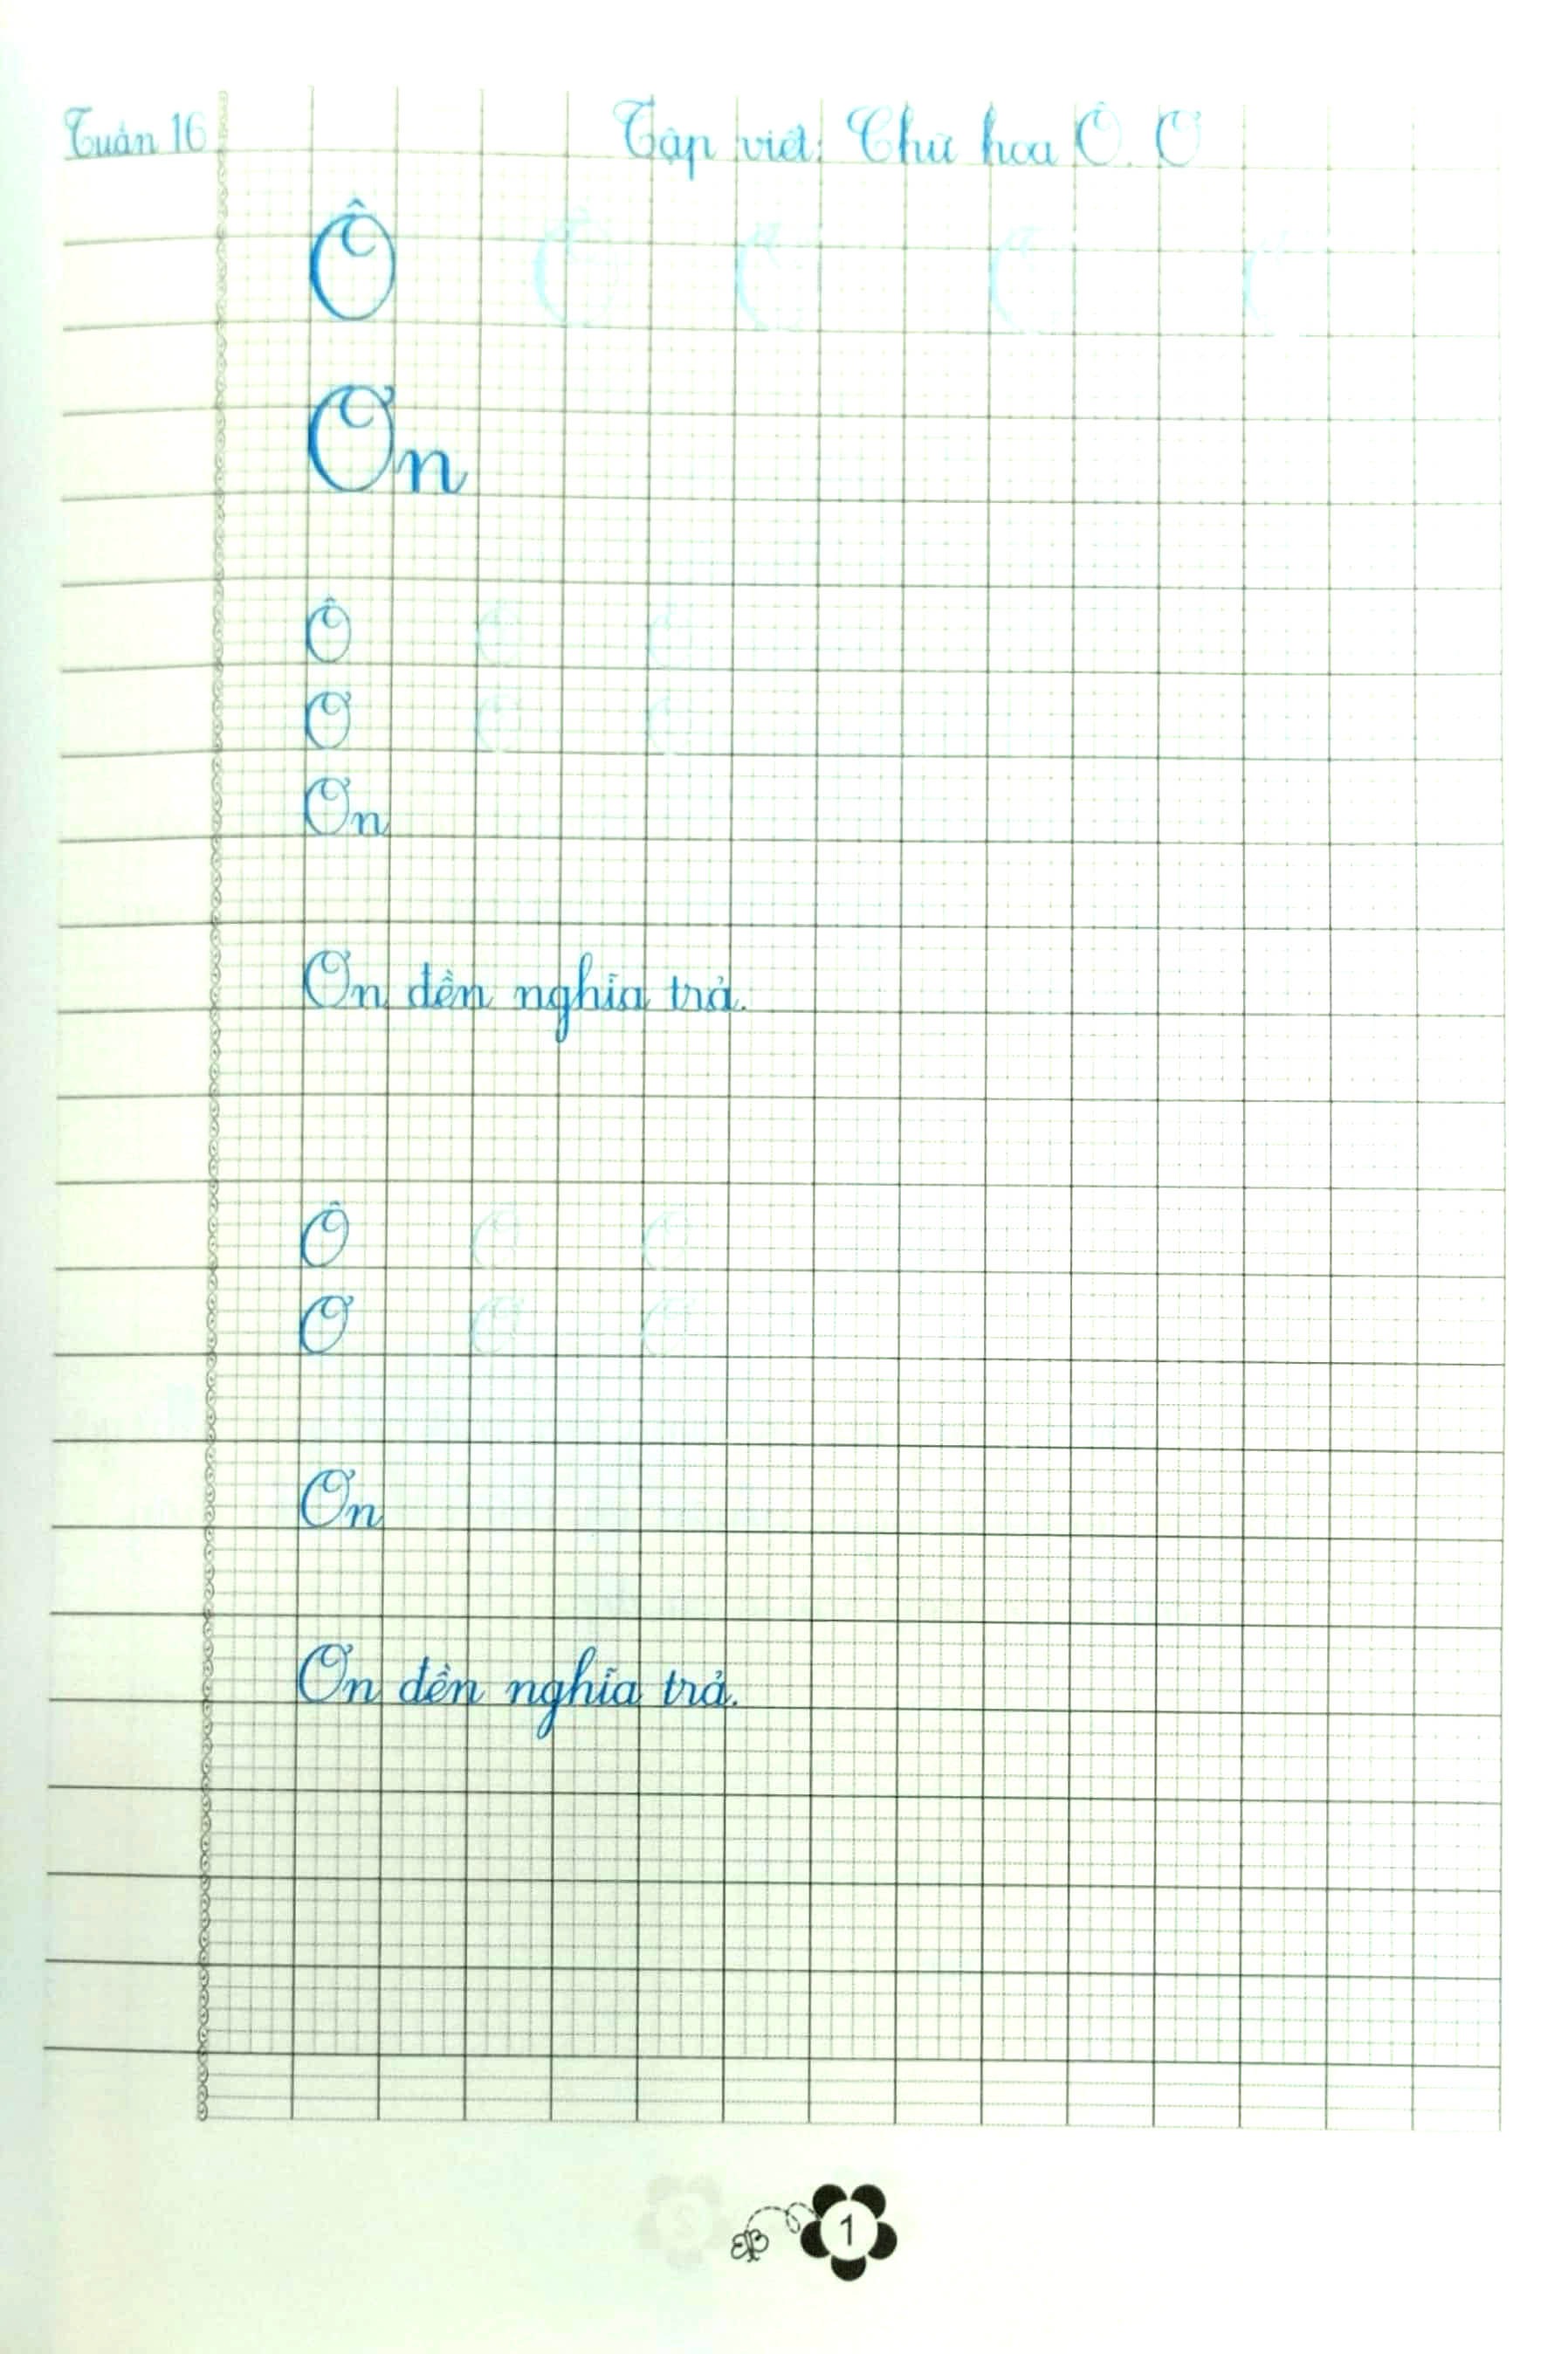 Tuần 16
Tập viết: Chữ hoa Ô. Ơ
Ô Ô
Ơn
Ô
Ơ
Ơn
Ơn đền nghĩa trả.
Ô
Ơ
Ơn
Ơn đền nghĩa trả.
1